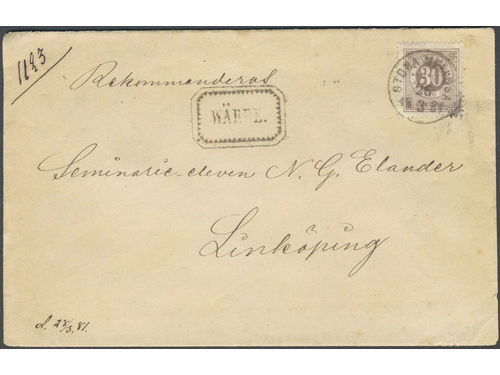 1123
Rekommenderas
30
STORA
WÄRDE.
Seminarie-eleven N. G. Elander
Linköping
d. 28/3. 81.